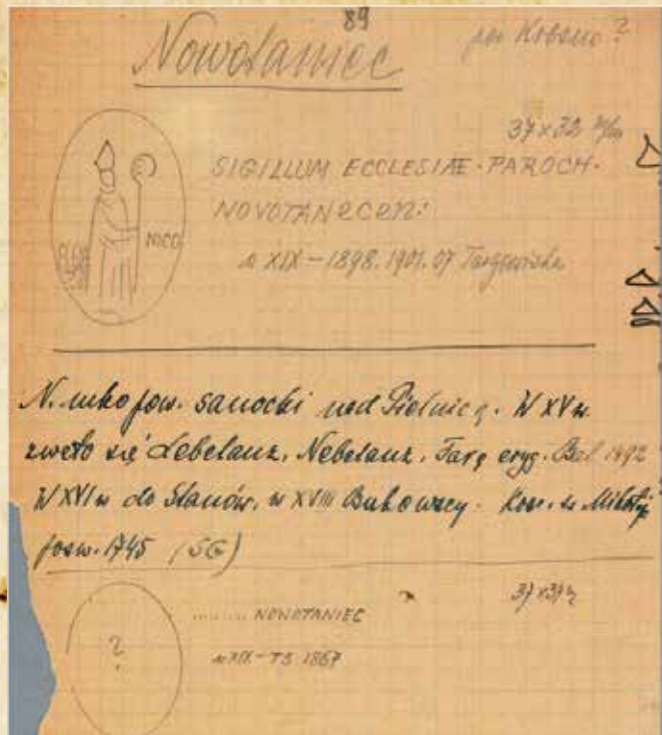 89
Nowotaniec
37 x 32 m/m
SIGILLUM ECCLESIAE · PAROCH ·
NOVOTANECEN:
NICO
w. XIX – 1898. 1901. 07 Targowiska
N. pow. sanocki nad Pielnicą. W XV w.
zwało się Lebelanz, Nebelanz. Farę eryg. Bal 1492
W XVI w do Stanów, w XVIII Bukowscy. Kość. św Mikołaj
posw. 1745 (SG)
37 x 37
......... NOWOTANIEC
?
w XIX – TS 1867